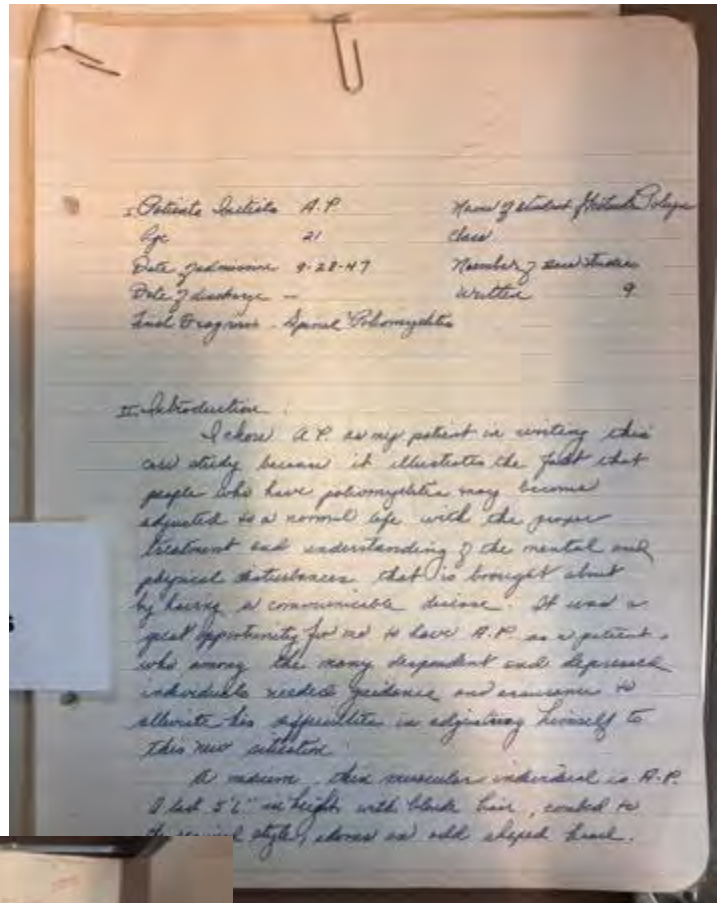 I. Patients Initials A.P. Name of student Gertrude
Age 21 Class
Date of admission 9-28-47 Number of case studies
Date of discharge — written 9
Final Diagnosis - Spinal Poliomyelitis
II. Introduction.
I chose A.P. as my patient in writing this
case study because it illustrates the fact that
people who have poliomyelitis may become
adjusted to a normal life with the proper
treatment and understanding of the mental and
physical disturbances that is brought about
by having a communicable disease. It was a
great opportunity for me to have A.P. as a patient,
who among the many dependent and depressed
individuals needed guidance and assurance to
alleviate his difficulties in adjusting himself to
this new situation.
A medium, thin muscular individual is A.P.
in height with black hair, combed to
style, adorns an odd shaped head.
s